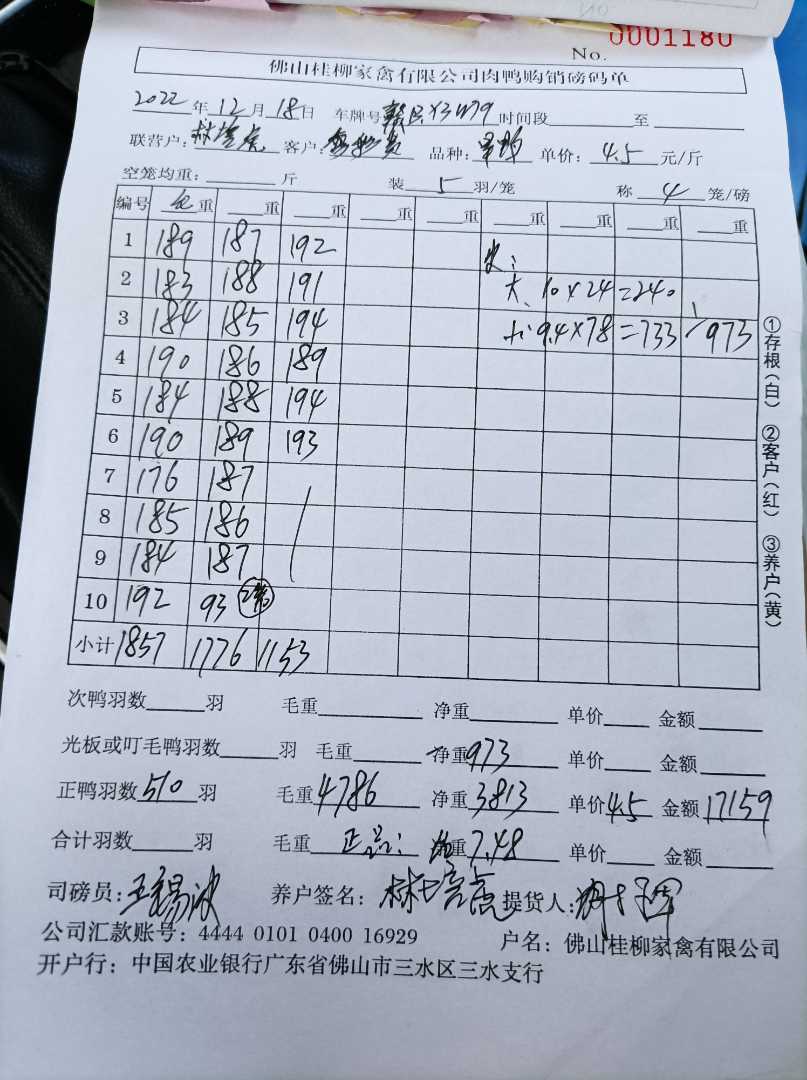 No. 0001180
佛山桂柳家禽有限公司肉鸭购销磅码单
2022年12月18日 车牌号 时间段 至
联营户: 林培点 客户: 品种: 单价: 4.5 元/斤
空笼均重: 斤 装 5 羽/笼 称 4 笼/磅
编号 毛重 重 重 重 重 重 重 重 重
1 189 187 192
2 183 188 191 大、10×24=240
3 184 185 194 9.4×78=733 973
4 190 186 189
5 184 188 194
6 190 189 193
7 176 187
8 185 186
9 184 187
10 192 93
小计 1857 1776 1153
次鸭羽数 羽 毛重 净重 单价 金额
光板或叮毛鸭羽数 羽 毛重 净重 973 单价 金额
正鸭羽数 510 羽 毛重 4786 净重 3813 单价 4.5 金额 17159
合计羽数 羽 毛重 正品: 重 7.48 单价 金额
司磅员: 王锡波 养户签名: 林培点 提货人:
公司汇款账号: 4444 0101 0400 16929 户名: 佛山桂柳家禽有限公司
开户行: 中国农业银行广东省佛山市三水区三水支行
①存根(白) ②客户(红) ③养户(黄)